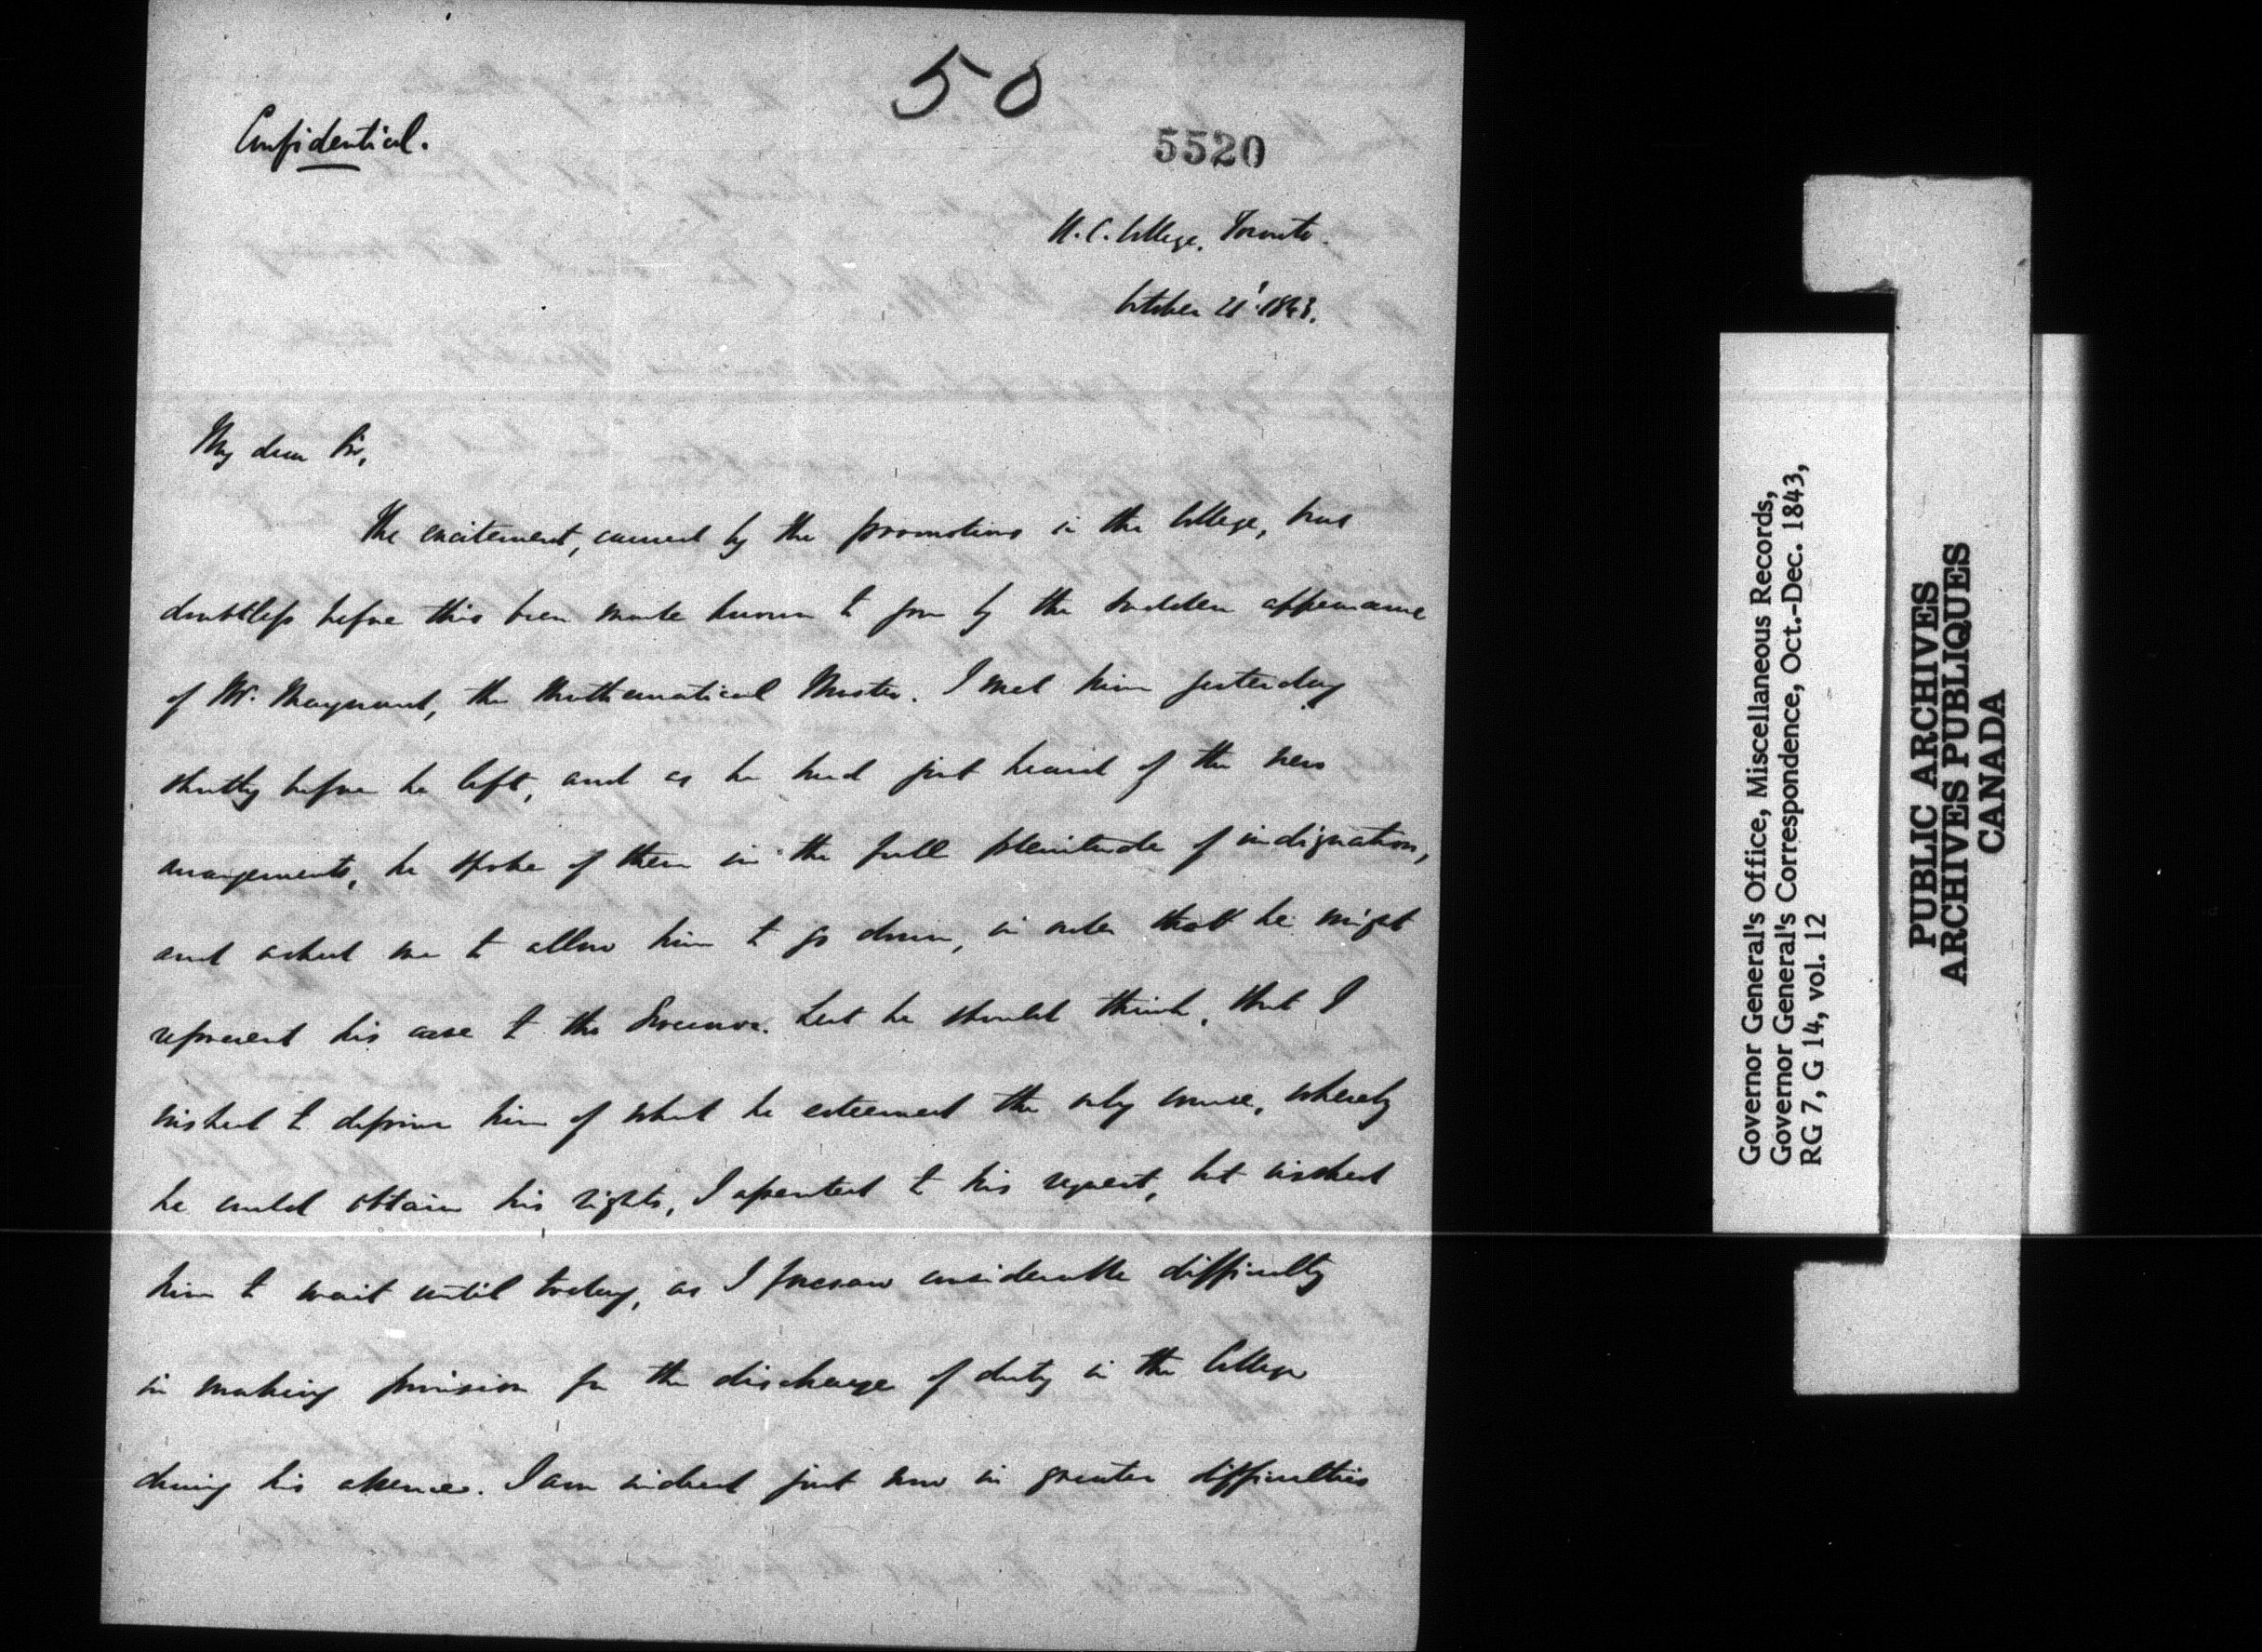 50
Confidential.
5520
U. C. College, Toronto.
October 21st 1843.
My dear Sir,
The excitement, caused by the promotions in the College, has
doubtless before this been made known to you by the sudden appearance
of Mr. Maynard, the Mathematical Master. I met him yesterday
shortly before he left, and as he had just heard of the new
arrangements, he spoke of them in the full plenitude of indignation,
and asked me to allow him to go down, in order that he might
represent his case to the Governor. Lest he should think, that I
wished to deprive him of what he esteemed the only course, whereby
he could obtain his rights, I assented to his request, but wished
him to wait until today, as I foresaw considerable difficulty
in making provision for the discharge of duty in the College
during his absence. I am indeed just now in greater difficulties
Governor General's Office, Miscellaneous Records,
Governor General's Correspondence, Oct.-Dec. 1843,
RG 7, G 14, vol. 12
PUBLIC ARCHIVES
ARCHIVES PUBLIQUES
CANADA